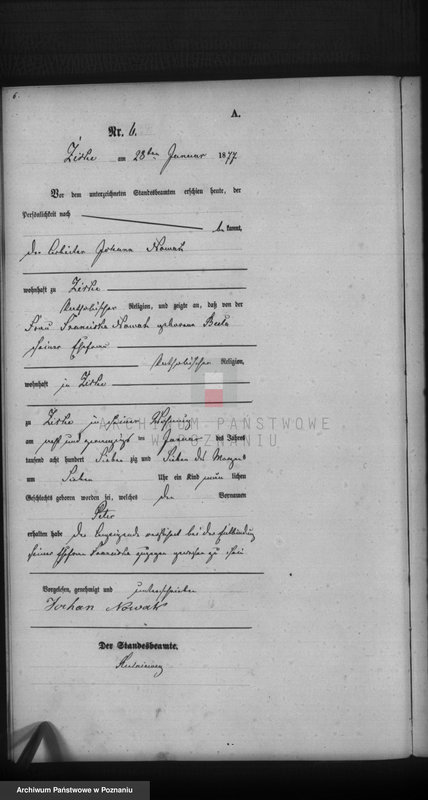 6.
A.
Nr. 6.
Zirke am 28ten Januar 1877
Vor dem unterzeichneten Standesbeamten erschien heute, der
Persönlichkeit nach
be kannt,
der Arbeiter Johann Nowak
wohnhaft zu Zirke
katholischer Religion, und zeigte an, daß von der
Frau Franciska Nowak geborene
seiner Ehefrau
katholischer Religion,
wohnhaft in Zirke
zu Zirke in seiner Wohnung
am und zwanzigsten Januar des Jahres
tausend acht hundert Sieben zig und Sieben des Morgens
um Sieben Uhr ein Kind männ lichen
Geschlechts geboren worden sei, welches den Vornamen
Peter
erhalten habe der Anzeigende bei der Entbindung
seiner Ehefrau Franciska zugegen gewesen zu sein
Vorgelesen, genehmigt und unterschrieben
Johan Nowak
Der Standesbeamte.
ARCHIWUM PAŃSTWOWE
W POZNANIU
Archiwum Państwowe w Poznaniu